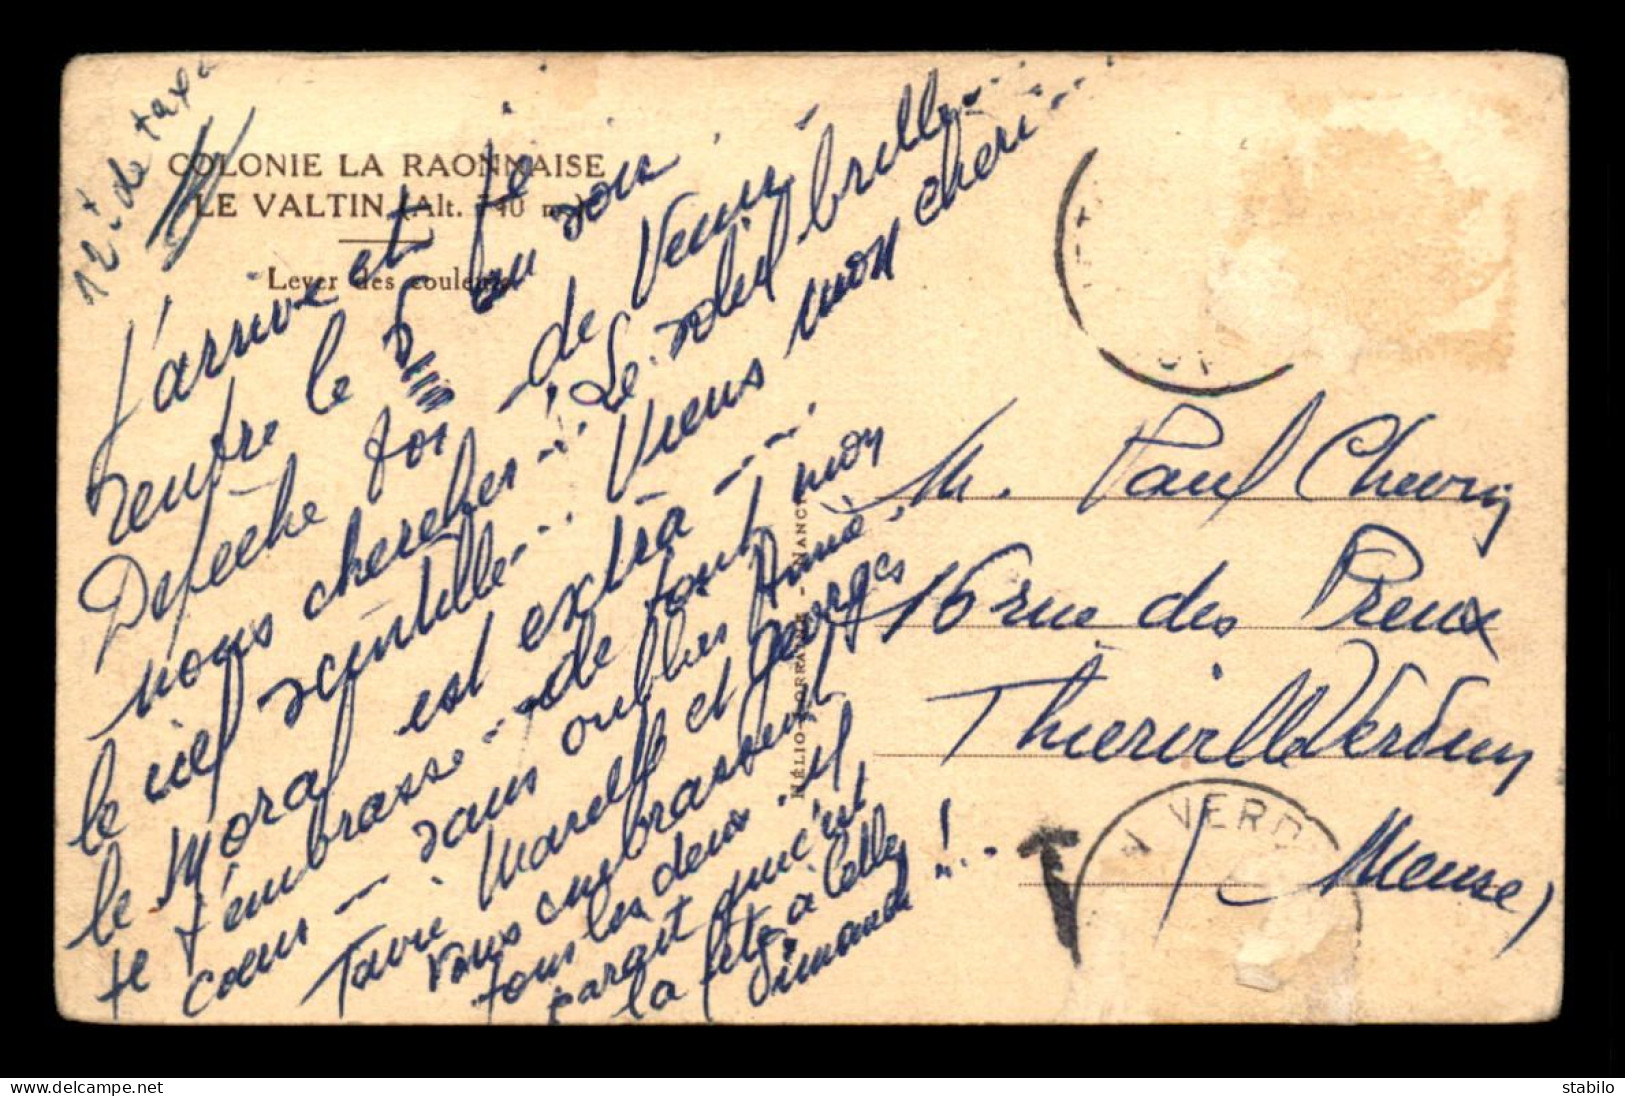 12 f de taxe
COLONIE LA RAONNAISE
LE VALTIN (Alt. 740 m.)
Lever des couleurs
J'arrive et je
rentre le 5 au soir
Depêche toi de venir
nous chercher... Le soleil brille...
le ciel scintille... Viens mon cheri...
le Moral est extra...
te t'embrasse de tout mon
cœur - sans oublier Aimé.
Marcelle et Georges
vous embrassent
tous les deux. Il
parait que c'est
la fête à
dimanche!...
HÉLIO - NANCY
M. Paul Chevry
16 rue des Preux
Thierville Verdun
(Meuse)
T
VERD
stabilo